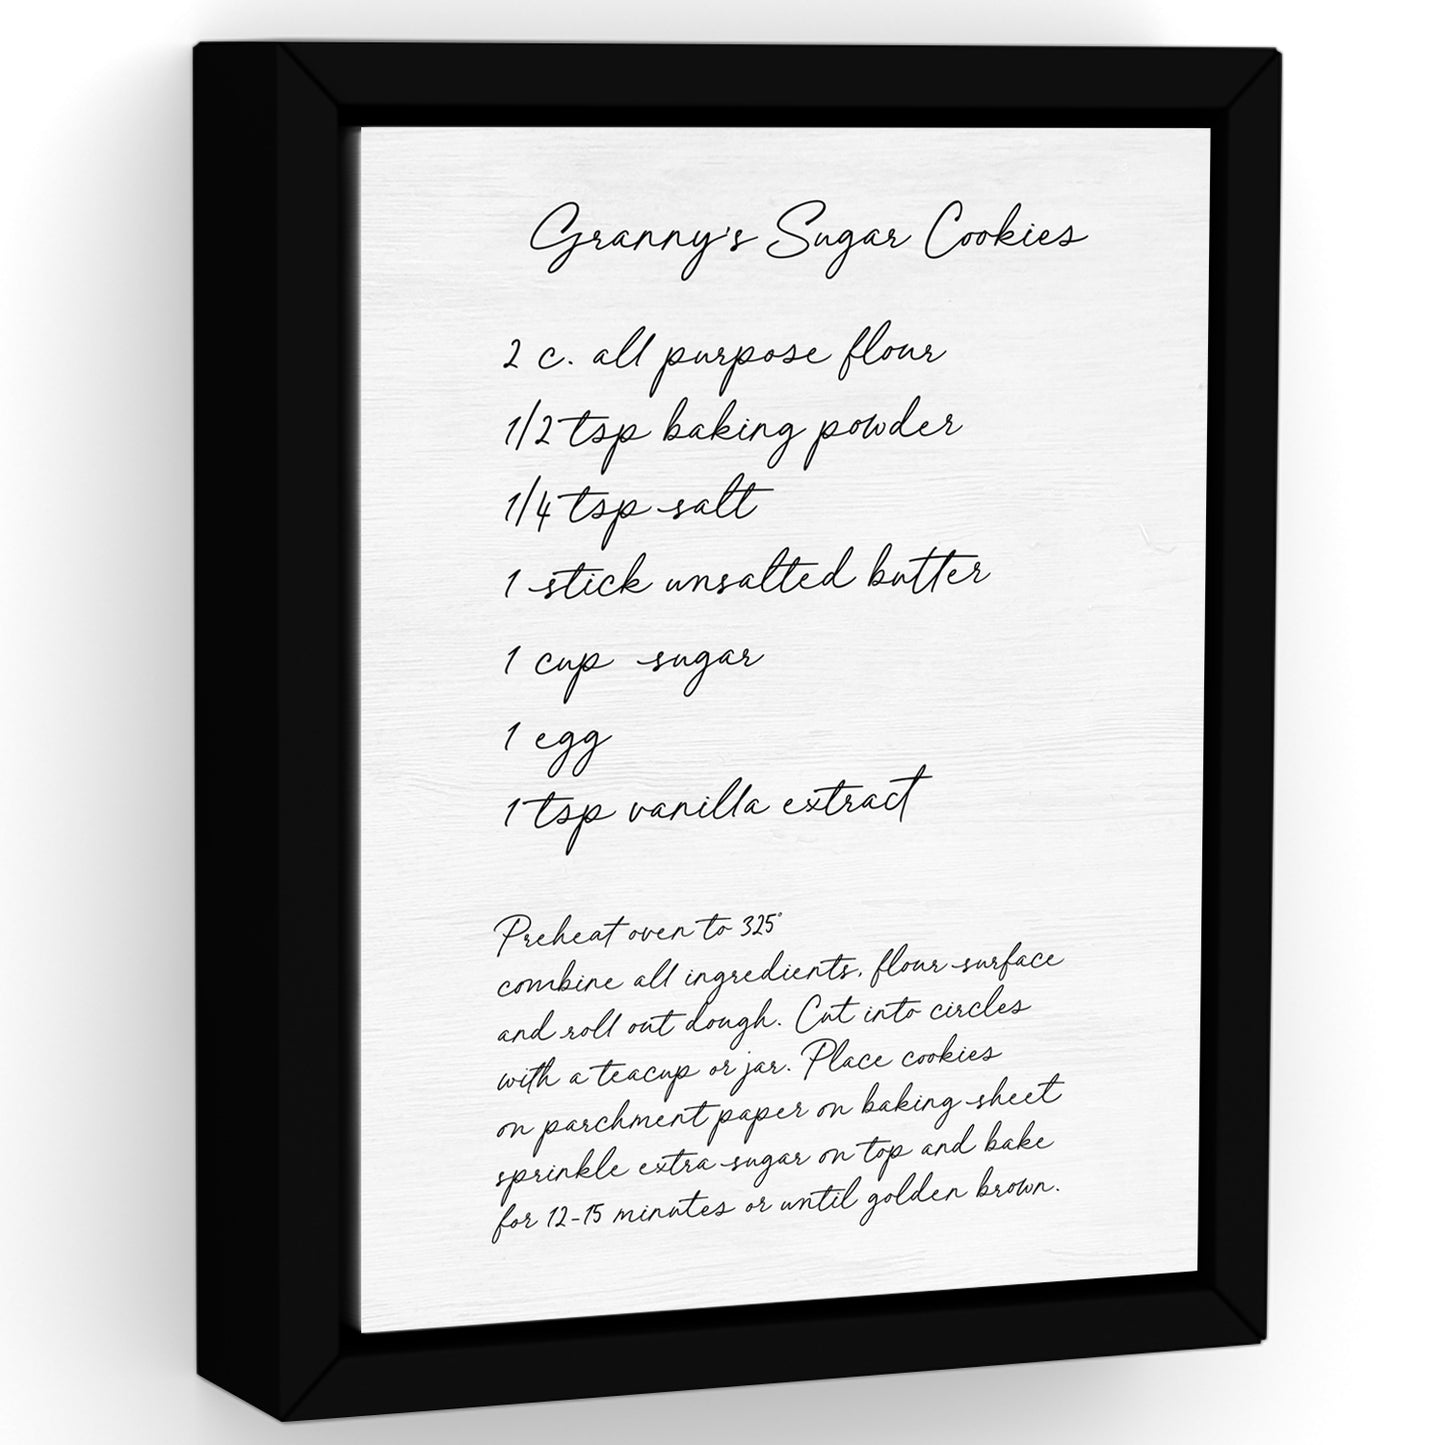 Granny's Sugar Cookies
2 c. all purpose flour
1/2 tsp baking powder
1/4 tsp salt
1 stick unsalted butter
1 cup sugar
1 egg
1 tsp vanilla extract
Preheat oven to 325°
combine all ingredients, flour surface
and roll out dough. Cut into circles
with a teacup or jar. Place cookies
on parchment paper on baking sheet
sprinkle extra sugar on top and bake
for 12-15 minutes or until golden brown.